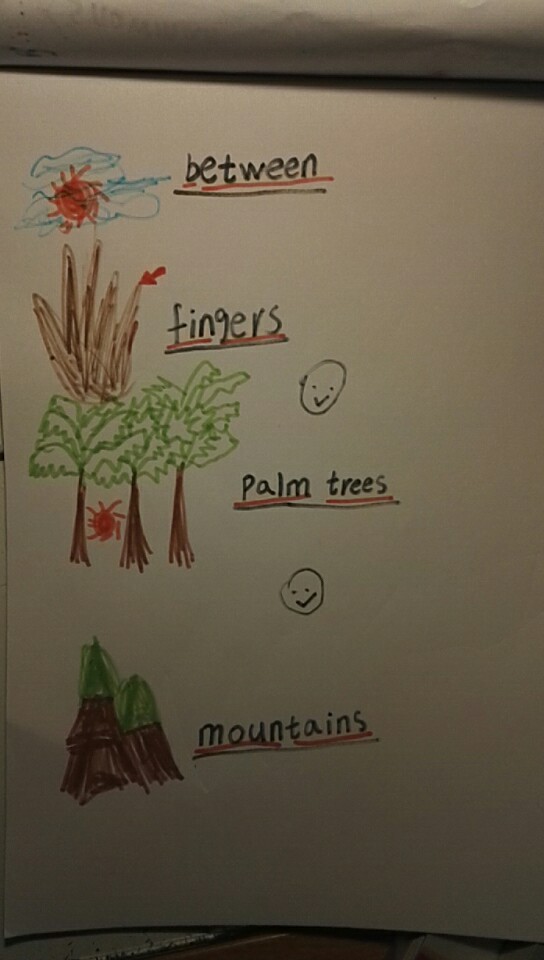 between
fingers
palm trees
mountains